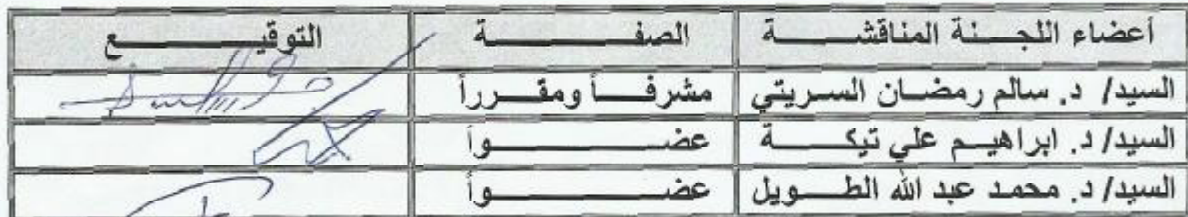 أعضاء اللجنة المناقشة الصفة التوقيع
السيد/ د. سالم رمضان السريتي مشرفاً ومقرراً
السيد/ د. ابراهيم علي تيكة عضواً
السيد/ د. محمد عبد الله الطويل عضواً